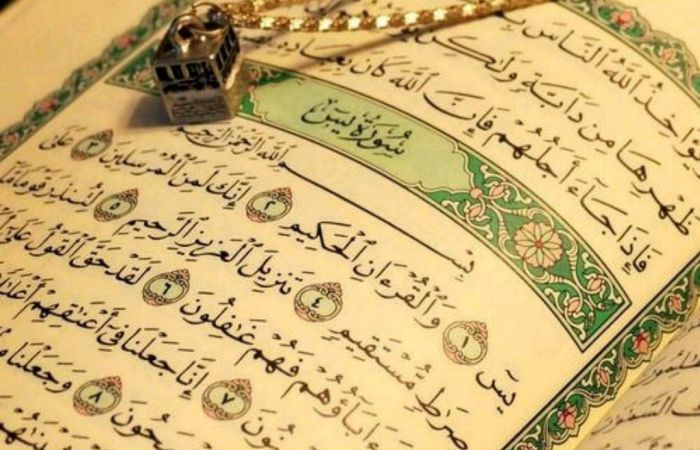 ٱللَّهُ ٱلنَّاسَ
ظَهْرِهَا مِن دَآبَّةٍ وَلَٰكِن
فَإِذَا جَآءَ أَجَلُهُمْ فَإِنَّ ٱللَّهَ كَانَ
سُورَةُ يسٓ
بِسْمِ ٱللَّهِ ٱلرَّحْمَٰنِ ٱلرَّحِيمِ
يسٓ ١ وَٱلْقُرْءَانِ ٱلْحَكِيمِ ٢ إِنَّكَ لَمِنَ ٱلْمُرْسَلِينَ ٣ عَلَىٰ
صِرَٰطٍ مُّسْتَقِيمٍ ٤ تَنزِيلَ ٱلْعَزِيزِ ٱلرَّحِيمِ ٥ لِتُنذِرَ قَوْمًا مَّآ
ءَابَآؤُهُمْ فَهُمْ غَٰفِلُونَ ٦ لَقَدْ حَقَّ ٱلْقَوْلُ عَلَىٰٓ
٧ إِنَّا جَعَلْنَا فِىٓ أَعْنَٰقِهِمْ أَغْلَٰلًا
٨ وَجَعَلْنَا